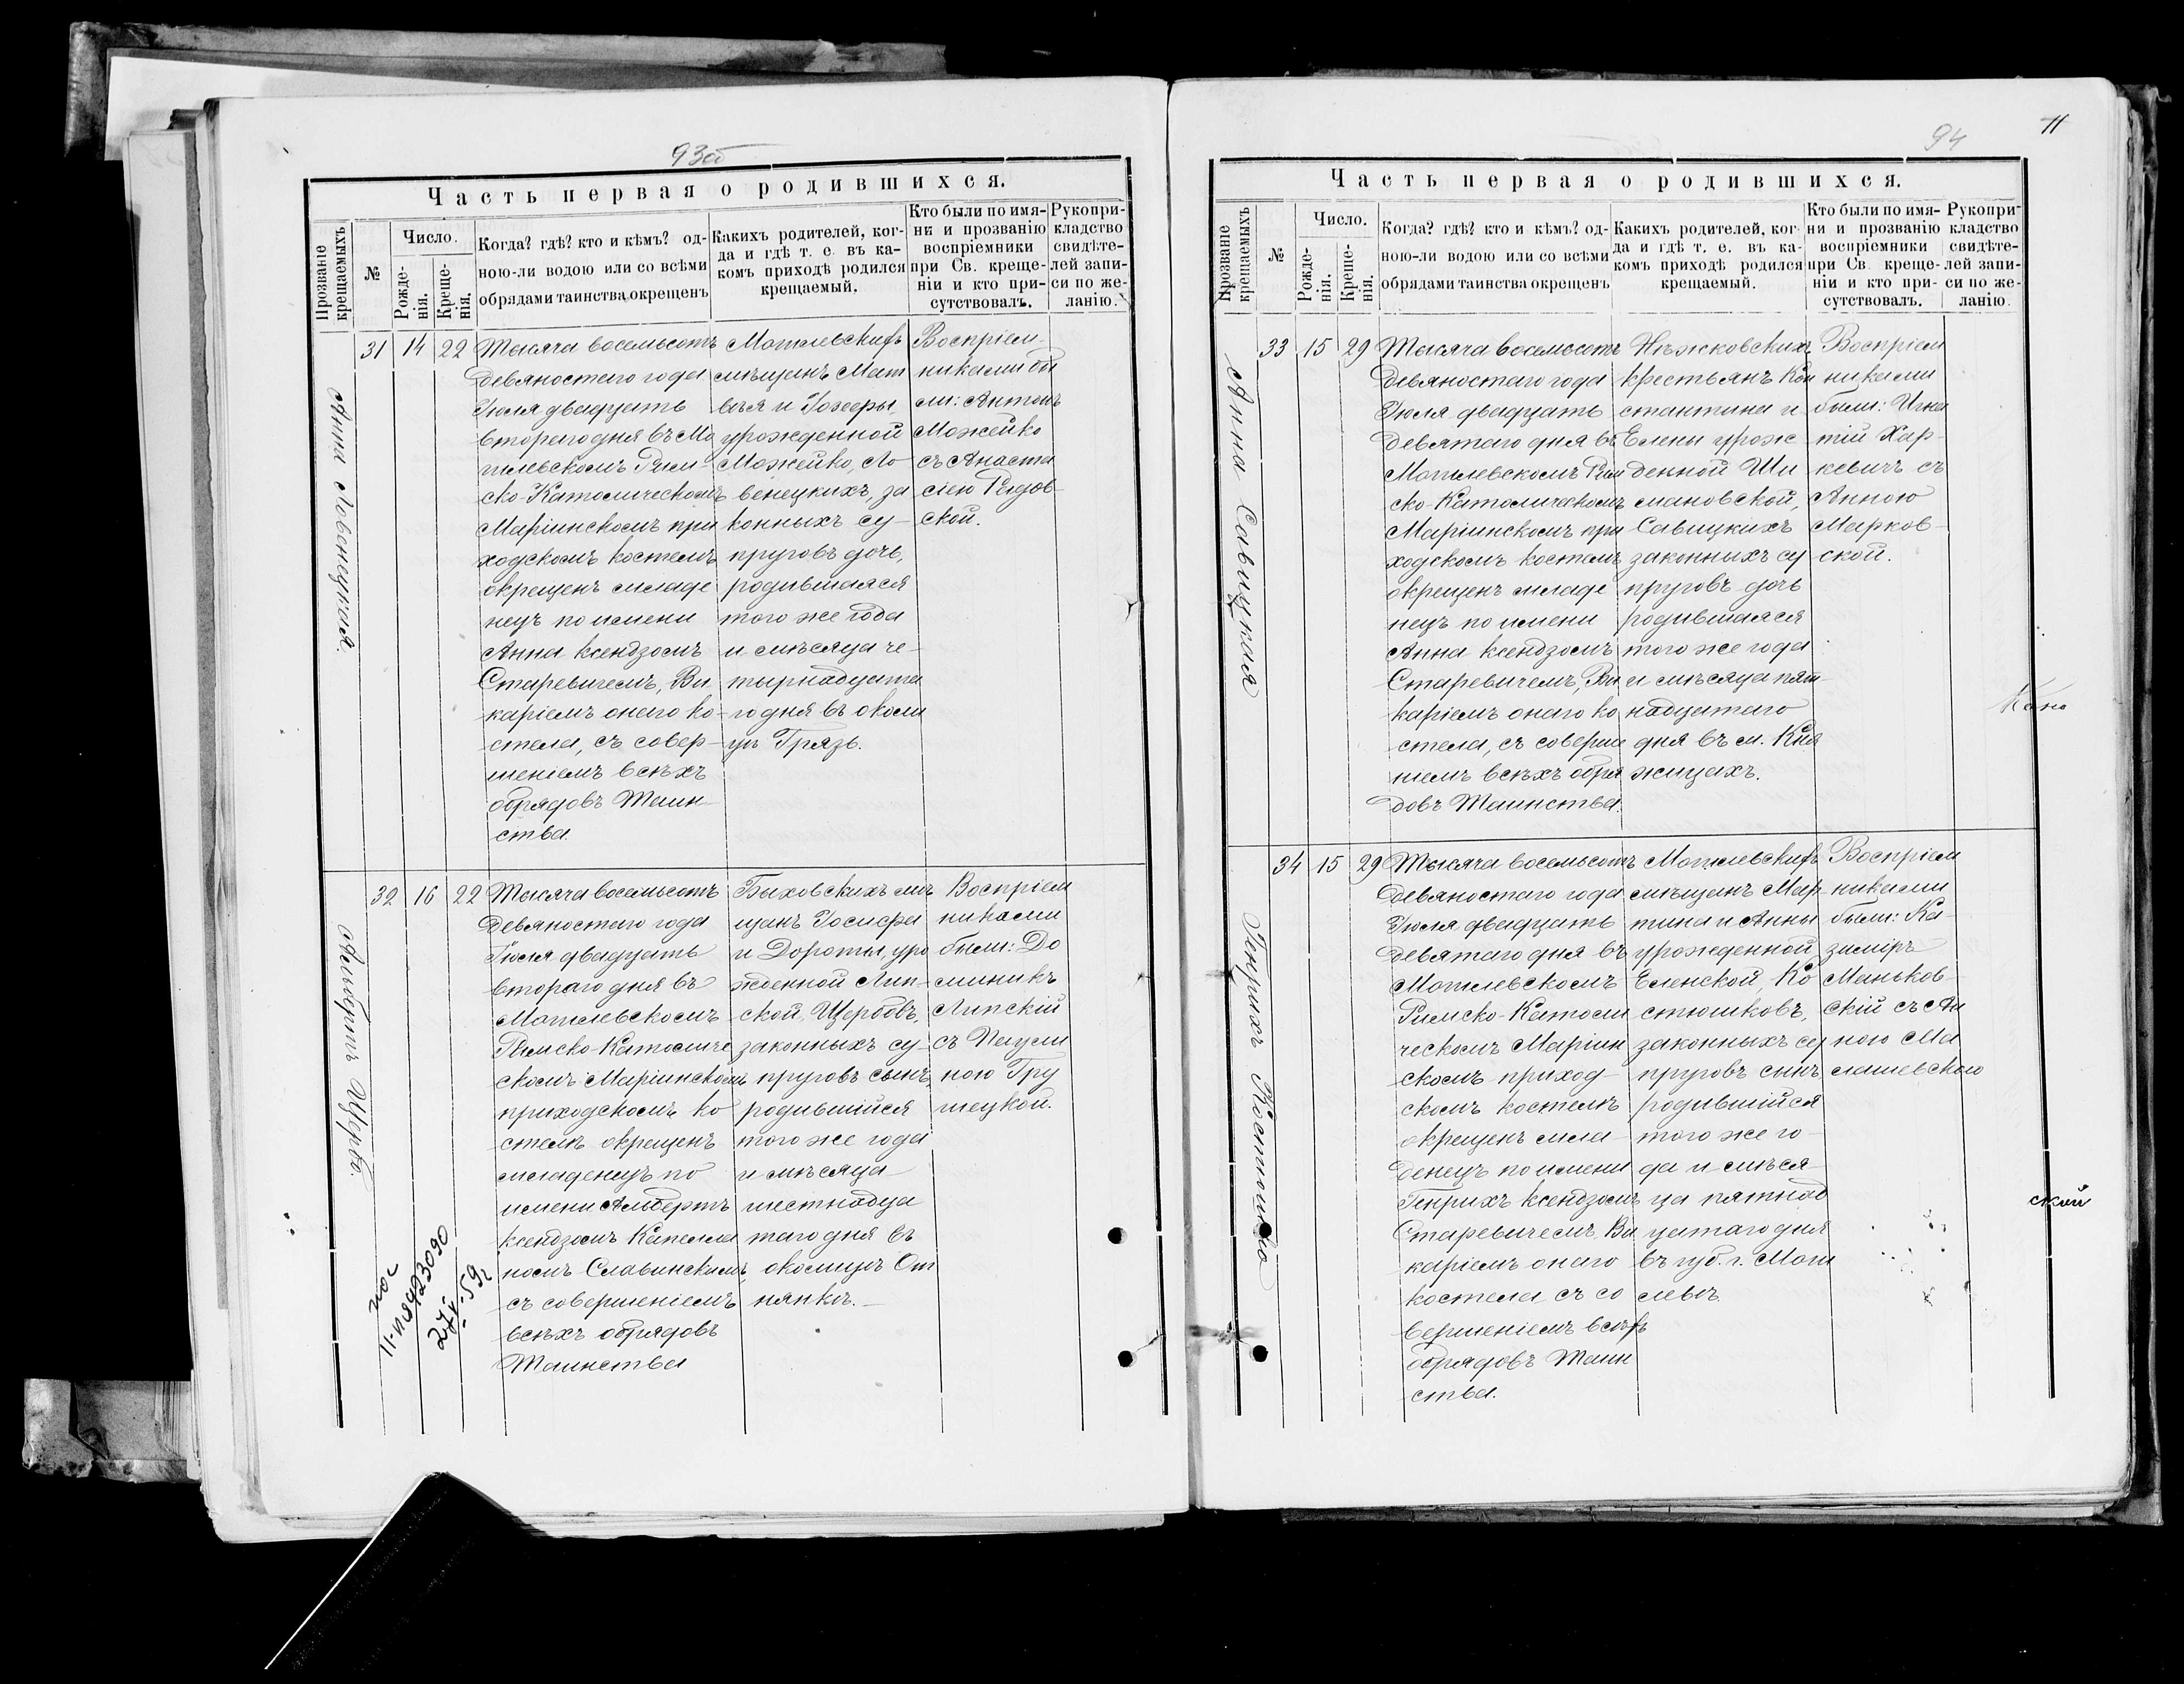 93об
Часть первая о родившихся.
Прозваніе крещаемыхъ
№
Число.
Рожденія.
Крещенія.
Когда? гдѣ? кто и кѣмъ? од-
ною-ли водою или со всѣми
обрядами таинства окрещенъ
Какихъ родителей, ког-
да и гдѣ т. е. въ ка-
комъ приходѣ родился
крещаемый.
Кто были по имя-
ни и прозванію
воспріемники
при Св. креще-
ніи и кто при-
сутствовалъ.
Рукопри-
кладство
свидѣте-
лей запи-
си по же-
ланію.
Анна Ловенецкая.
31 14 22
Тысяча восемьсотъ
девяностаго года
Іюля двадцать
втораго дня въ Мо
гилевскомъ Рим-
ско-Католическомъ
Маріинскомъ при
ходскомъ костелѣ
окрещенъ младе
нецъ по имени
Анна ксендзомъ
Старевичемъ, Ви
каріемъ онаго ко-
стела, съ совер-
шеніемъ всѣхъ
обрядовъ Таин-
ства.
Могилевскихъ
мѣщанъ Мат
вѣя и Іозефы,
урожденной
Можейко, Ло
венецкихъ, за
конныхъ су-
пруговъ дочь,
родившаяся
того же года
и мѣсяца че-
тырнадцата
го дня въ околи
цѣ Грязь.
Воспріем-
никами бы
ли: Антонъ
Можейко
съ Анаста
сіею
ской.
Альбертъ Щербо.
32 16 22
Тысяча восемьсотъ
девяностаго года
Іюля двадцать
втораго дня въ
Могилевскомъ
Римско-Католиче
скомъ Маріинскомъ
приходскомъ ко
стелѣ окрещенъ
младенецъ по
имени Альбертъ
ксендзомъ Капелла
номъ Славинскимъ,
съ совершеніемъ
всѣхъ обрядовъ
Таинства
Быховскихъ мѣ
щанъ Іосифа
и Доротеи, уро
жденной Лип-
ской, Щербовъ,
законныхъ су-
пруговъ сынъ,
родившійся
того же года
и мѣсяца
шестнадца
таго дня въ
околицѣ От
нянкѣ.
Воспріем
никами
были: До
миникъ
Липскій
съ Паули
ною Гру
шецкой.
27-V-59
94
11
Часть первая о родившихся.
Прозваніе крещаемыхъ
№
Число.
Рожденія.
Крещенія.
Когда? гдѣ? кто и кѣмъ? од-
ною-ли водою или со всѣми
обрядами таинства окрещенъ
Какихъ родителей, ког-
да и гдѣ т. е. въ ка-
комъ приходѣ родился
крещаемый.
Кто были по имя-
ни и прозванію
воспріемники
при Св. креще-
ніи и кто при-
сутствовалъ.
Рукопри-
кладство
свидѣте-
лей запи-
си по же-
ланію.
Анна Савицкая
33 15 29
Тысяча восемьсотъ
девяностаго года
Іюля двадцать
девятаго дня въ
Могилевскомъ Рим
ско-Католическомъ
Маріинскомъ при
ходскомъ костелѣ
окрещенъ младе
нецъ по имени
Анна ксендзомъ
Старевичемъ, Ви
каріемъ онаго ко
стела, съ соверше
ніемъ всѣхъ обря
довъ Таинства.
Нѣжковскихъ
крестьянъ Кон
стантина и
Елены урож
денной Ши
мановской,
Савицкихъ
законныхъ су
пруговъ дочь
родившаяся
того же года
и мѣсяца пят
надцатаго
дня въ м. Кня
жицахъ.
Воспріем
никами
были: Игна
тій Хар-
кевичъ съ
Анною
Марков-
ской.
Генрихъ Костюшко
34 15 29
Тысяча восемьсотъ
девяностаго года
Іюля двадцать
девятаго дня въ
Могилевскомъ
Римско-Католи
ческомъ Маріин
скомъ приход-
скомъ костелѣ
окрещенъ мла-
денецъ по имени
Генрихъ ксендзомъ
Старевичемъ, Ви
каріемъ онаго
костела съ со
вершеніемъ всѣхъ
обрядовъ Таин
ства.
Могилевскихъ
мѣщанъ Мар-
тина и Анны
урожденной
Еленской, Ко
стюшковъ,
законныхъ су
пруговъ сынъ
родившійся
того же го-
да и мѣся-
ца пятнад
цатаго дня
въ губ. г. Моги
левѣ.
Воспріем
никами
были: Ка-
зиміръ
Маньков-
скій съ Ан
ною Ма
лашевскою
ской